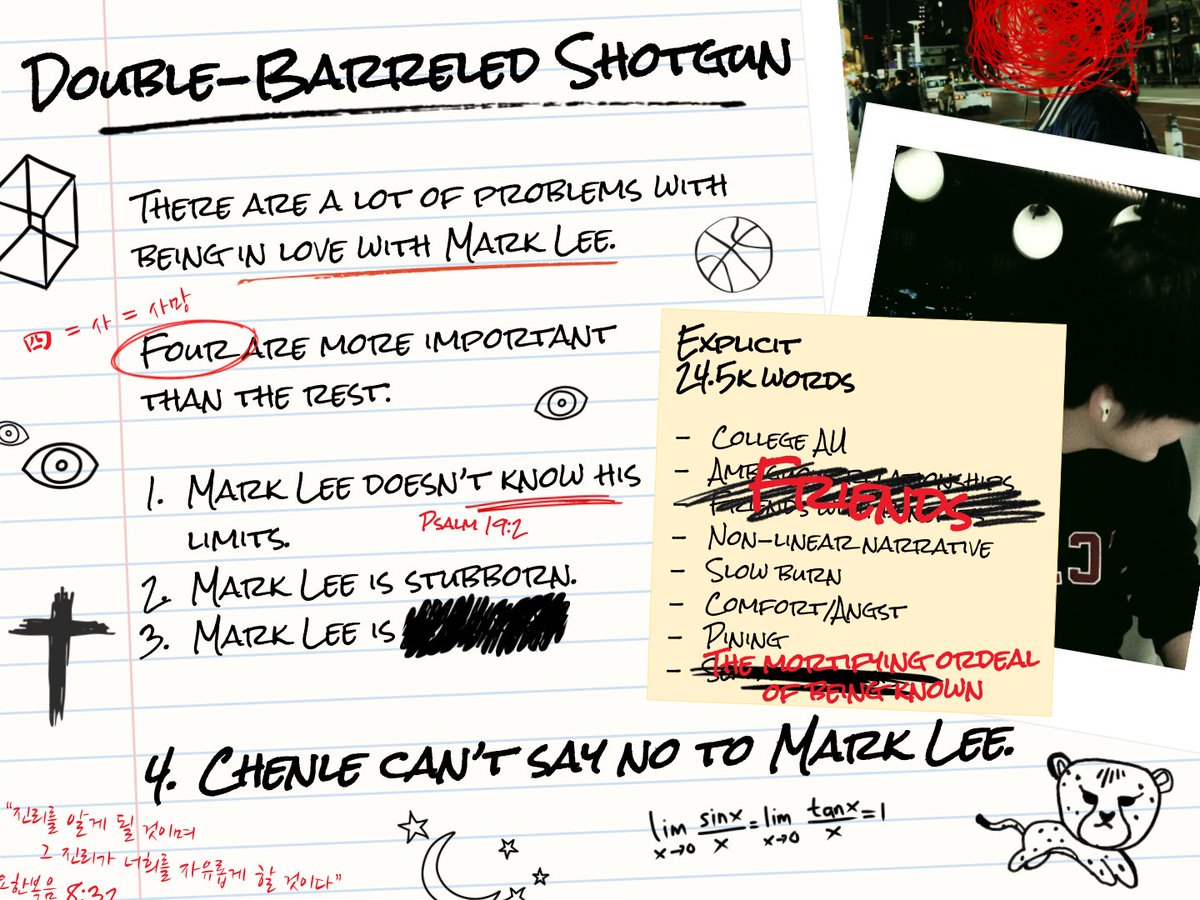 Double-Barreled Shotgun
There are a lot of problems with
being in love with Mark Lee.
四 = 사 = 사망
Four are more important
than the rest:
1. Mark Lee doesn't know his
Psalm 19:2
limits.
2. Mark Lee is stubborn.
3. Mark Lee is
4. Chenle can't say no to Mark Lee.
Explicit
24.5k words
- College AU
- Ambiguous relationships
Friends
- Friends with
- Non-linear narrative
- Slow burn
- Comfort/Angst
- Pining
- The mortifying ordeal
of being known
"진리를 알게 될 것이며
그 진리가 너희를 자유롭게 할 것이다"
요한복음 8:32
lim x→0 sinx/x = lim x→0 tanx/x = 1